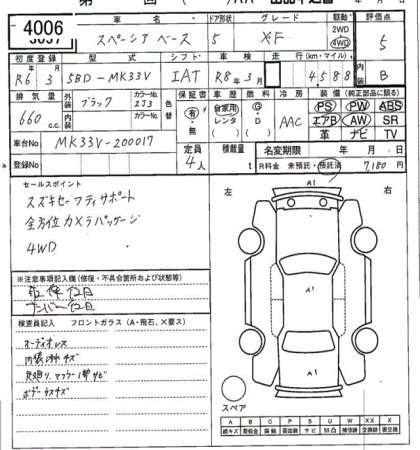 4006
車名
ドア形状
グレード
駆動
評価点
スペーシア ベース
5
XF
2WD
4WD
5
初度登録
型式
シフト
車検
走行(km・マイル)
内装
R6年3月
5BD-MK33V
IAT
R8年3月
4588
B
排気量
外装
カラーNo.
色替
保証書
車歴
燃料
冷房
装備(純正部品に限る)
660c.c.
ブラック
ZJ3
有・無
自家用
レンタ
G
D
AAC
PS PW ABS
エアB AW SR
革 ナビ TV
車台No
MK33V-200017
定員
4人
積載量
t
名変期限
年 月 日
登録No
R料金 未預託・預託済
7180円
セールスポイント
スズキセーフティサポート
全方位カメラパッケージ
4WD
左
右
A1
A1
A1
※注意事項記入欄(修復・不具合箇所および状態等)
検査員記入 フロントガラス(A・飛石、×要ス)
オーディオレス
内張 キズ
足廻り、マフラー サビ
ボデーウスキズ
スペア
A B C P S U W X XX